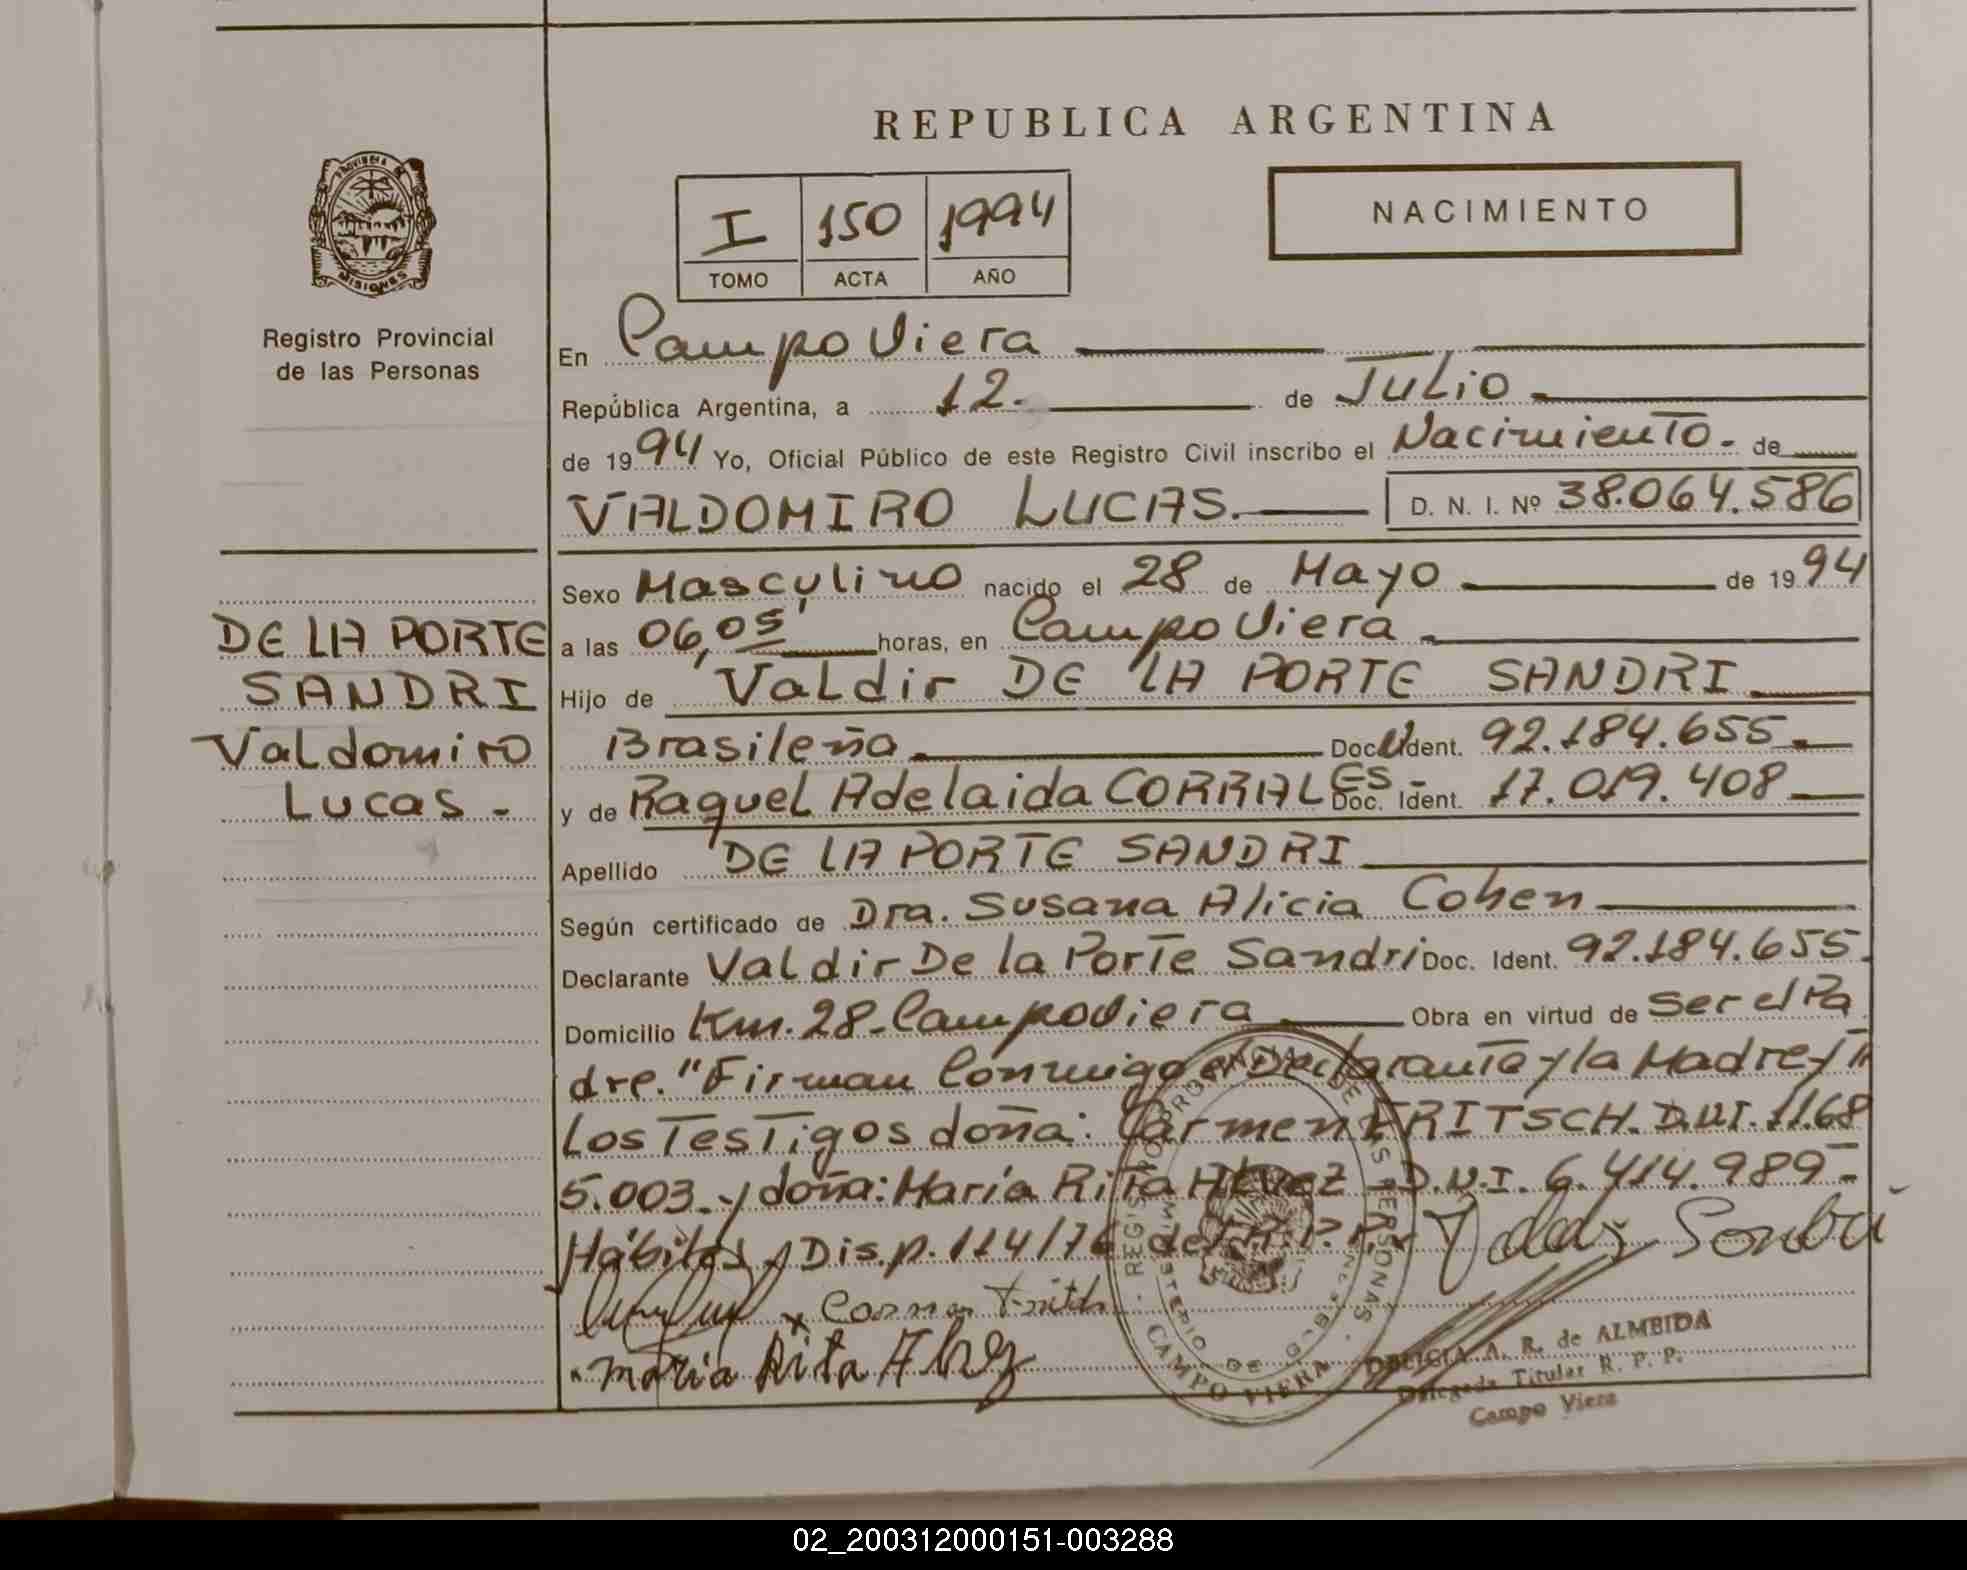 REPUBLICA ARGENTINA
PROVINCIA DE
MISIONES
Registro Provincial
de las Personas
I 150 1994
TOMO ACTA AÑO
NACIMIENTO
En Campo Viera
República Argentina, a 12. de Julio
de 1994 Yo, Oficial Público de este Registro Civil inscribo el Nacimiento. de
VALDOMIRO LUCAS. D. N. I. Nº 38.064.586
Sexo Masculino nacido el 28 de Mayo de 1994
a las 06,05 horas, en Campo Viera
Hijo de Valdir DE LA PORTE SANDRI
Brasileña Doc. Ident. 92.184.655.
y de Raquel Adelaida CORRALES - Doc. Ident. 17.019.408
Apellido DE LA PORTE SANDRI
Según certificado de Dra. Susana Alicia Cohen
Declarante Valdir De la Porte Sandri Doc. Ident. 92.184.655.
Domicilio Km. 28 - Campo Viera Obra en virtud de Ser el Pa
dre. "Firman Conmigo el Declarante y la Madre y
Los Testigos doña: Carmen FRITSCH. D.N.I. 11.68
5.003. y doña: María Rita Alvez D.N.I. 6.414.989-
Hábiles, Disp. 114/76 del R.P.P.
DE LA PORTE
SANDRI
Valdomiro
Lucas -
x
María Rita Alvez
REGISTRO PROVINCIAL DE LAS PERSONAS
MINISTERIO DE GOBIERNO
CAMPO VIERA
DELICIA A. R. de ALMEIDA
Delegada Titular R. P. P.
Campo Viera
02_200312000151-003288